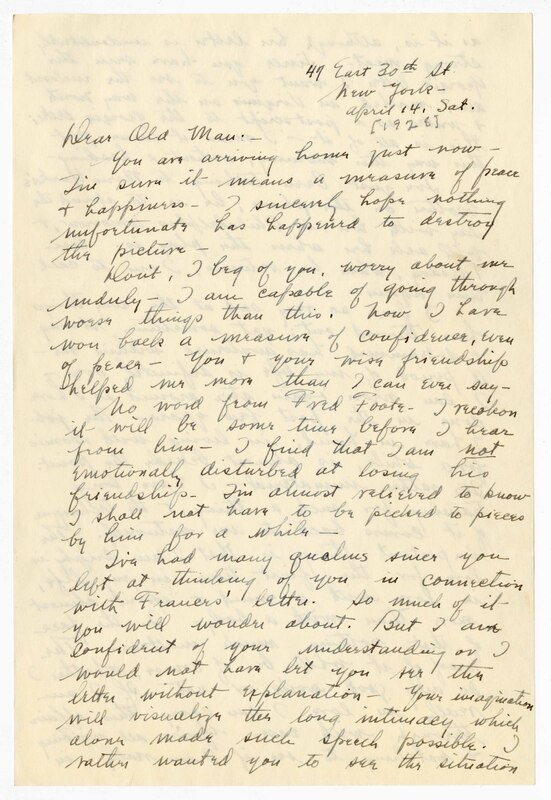 49 East 30th St.
New York—
April 14. Sat.
[1928]
Dear Old Man.—
You are arriving home just now—
I'm sure it means a measure of peace
+ happiness— I sincerely hope nothing
unfortunate has happened to destroy
the picture—
Don't, I beg of you, worry about me
unduly— I am capable of going through
worse things than this. Now I have
won back a measure of confidence, even
of peace— You + your wise friendship
helped me more than I can ever say—
No word from Fred Foote. I reckon
it will be some time before I hear
from him— I find that I am not
emotionally disturbed at losing his
friendship. I'm almost relieved to know
I shall not have to be picked to pieces
by him for a while—
I've had many qualms since you
left at thinking of you in connection
with Frances' letter. So much of it
you will wonder about. But I am
confident of your understanding or I
would not have let you see the
letter without explanation— Your imagination
will visualize the long intimacy which
alone made such speech possible. I
rather wanted you to see the situation